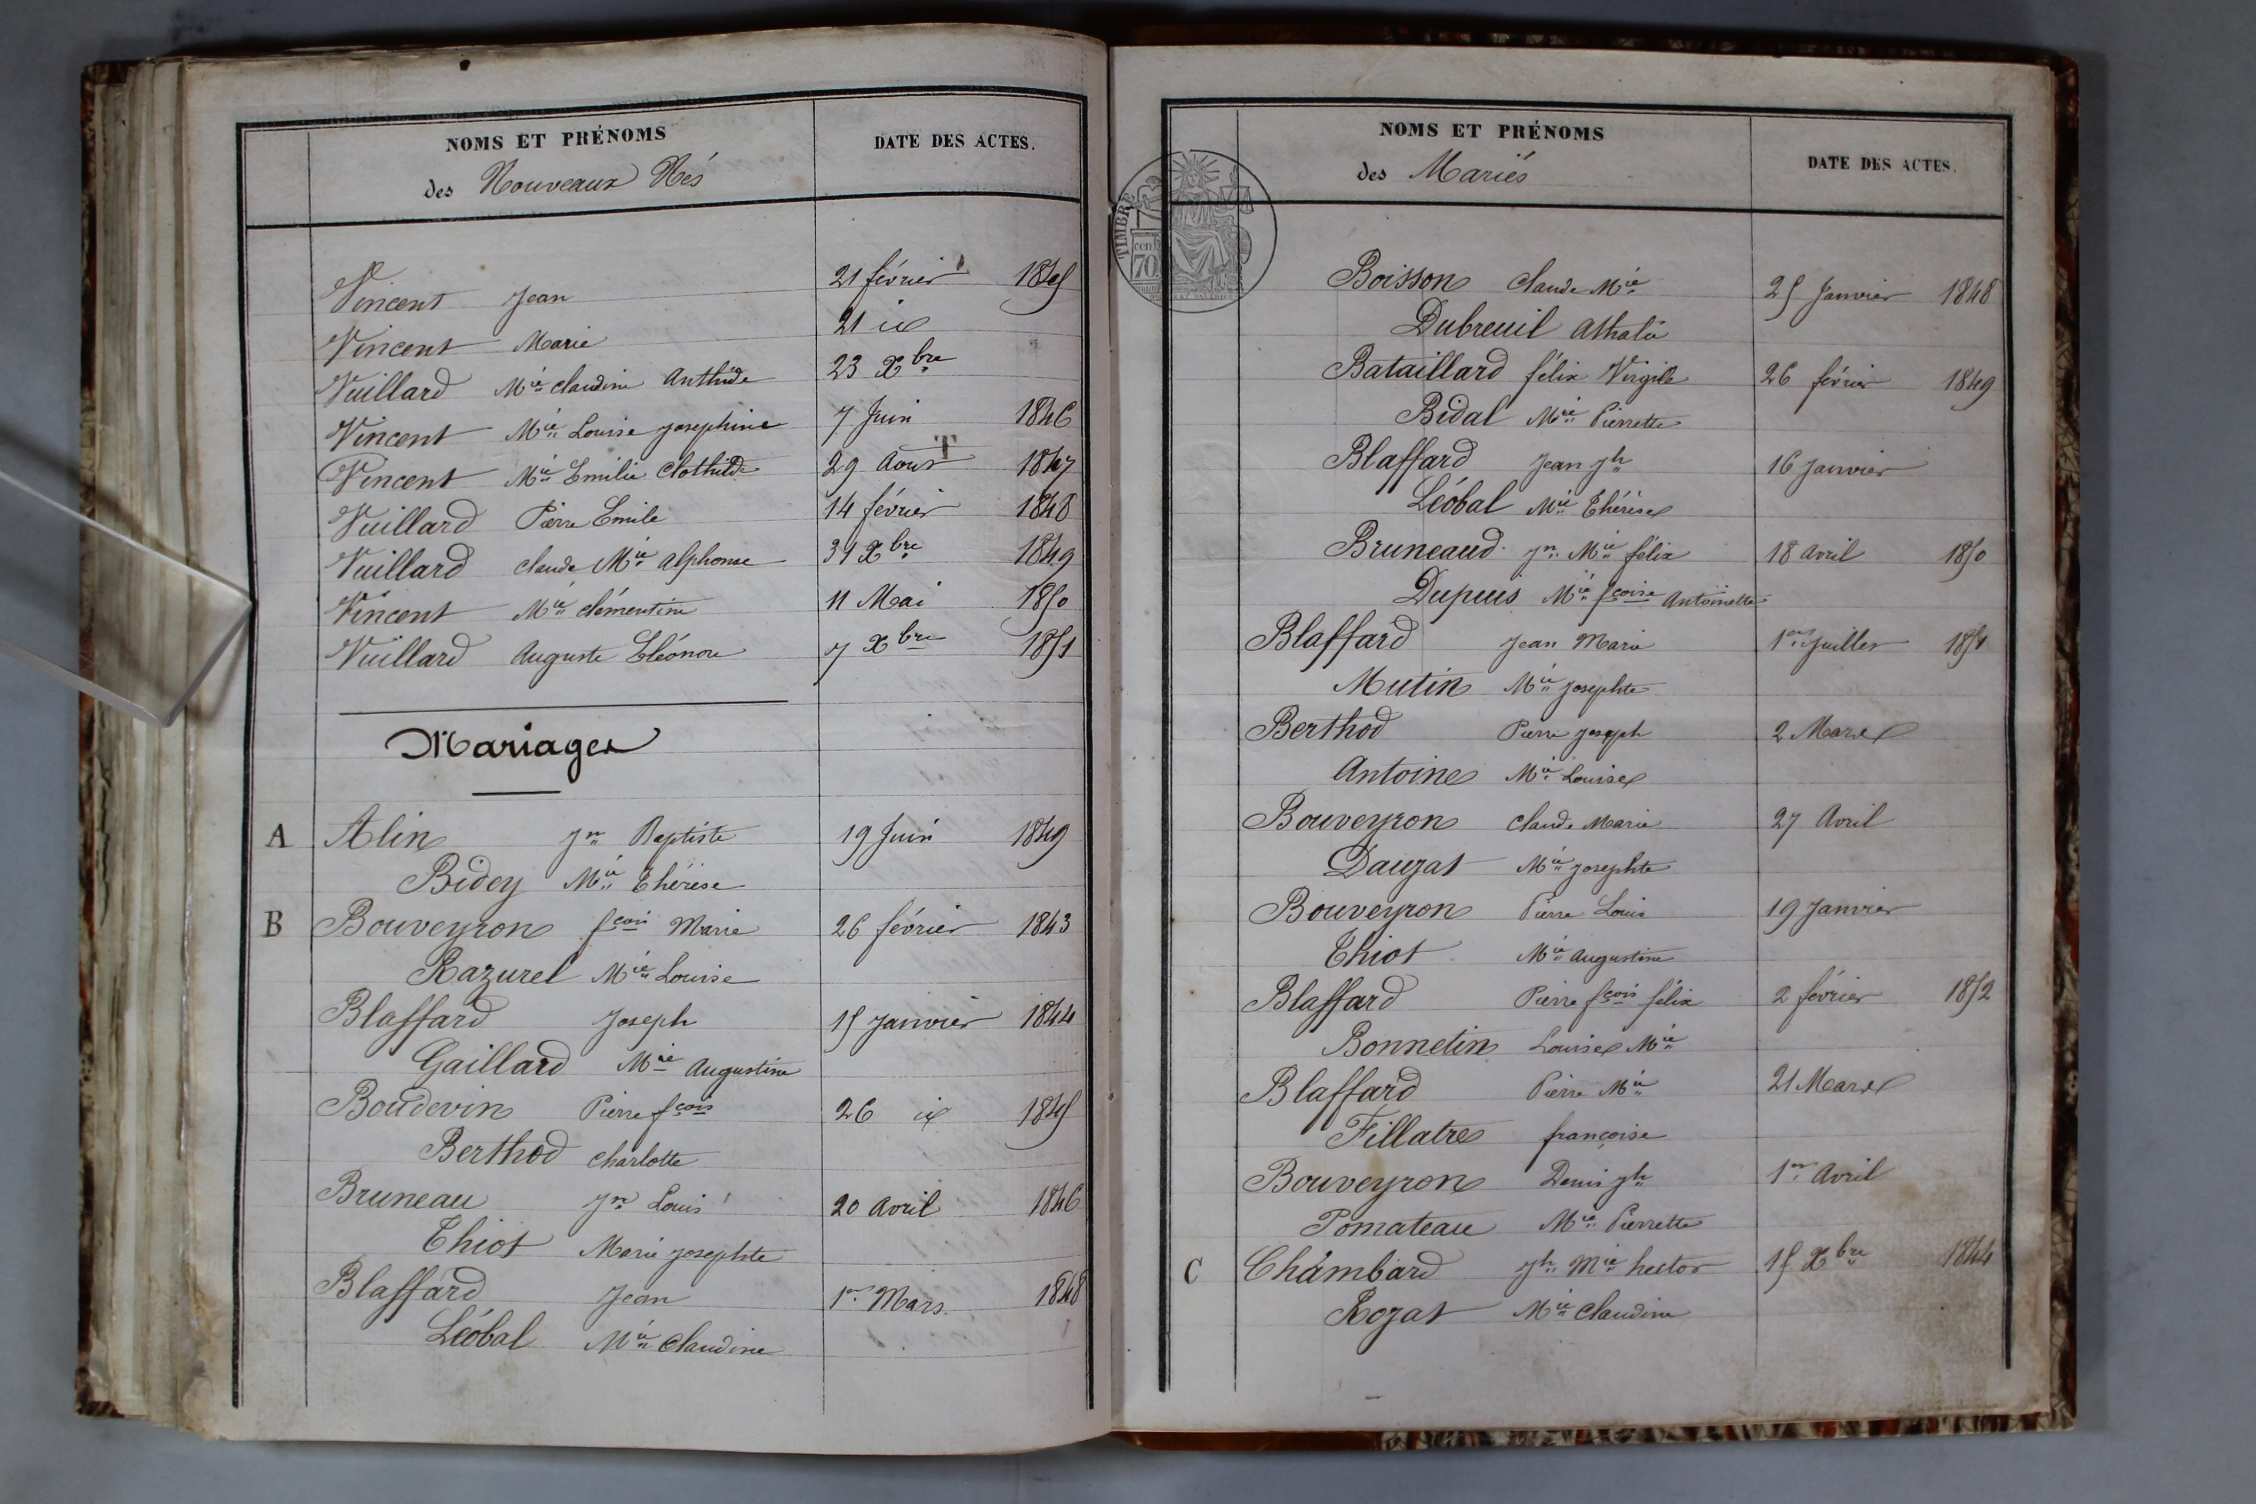 NOMS ET PRÉNOMS DATE DES ACTES.
des Nouveaux Nés
Vincent Jean 21 février 1845
Vincent Marie 21 id
Vuillard Mie Claudine Anthide 23 Xbre
Vincent Mie Louise Josephine 7 Juin 1846
Vincent Mie Emilie Clothilde 29 Aout 1847
Vuillard Pierre Emile 14 février 1848
Vuillard Claude Mie Alphonse 31 Xbre 1849
Vincent Mie Clémentine 11 Mai 1850
Vuillard Auguste Eléonore 7 Xbre 1851
Mariages
A Alin Jn Baptiste 19 Juin 1849
Bidey Mie Thérèse
B Bouveyron fçois Marie 26 février 1843
Razurel Mie Louise
Blaffard Joseph 15 Janvier 1844
Gaillard Mie Augustine
Boudevin Pierre fçois 26 id 1845
Berthod Charlotte
Bruneau Jn Louis 20 Avril 1846
Thiot Marie Josephte
Blaffard Jean 1er Mars 1848
Léobal Mie Claudine
NOMS ET PRÉNOMS
des Mariés DATE DES ACTES.
TIMBRE
70
Boisson Claude Mie 25 Janvier 1848
Dubreuil Athalie
Bataillard félix Virgile 26 février 1849
Bidal Mie Pierrette
Blaffard Jean Jh 16 Janvier
Léobal Mie Thérèse
Bruneaud Jn Mie félix 18 Avril 1850
Dupuis Mie fçoise Antoinette
Blaffard Jean Marie 1er Juillet 1851
Mutin Mie Josephte
Berthod Pierre Joseph 2 Mars
Antoine Mie Louise
Bouveyron Claude Marie 27 Avril
Dauzat Mie Josephte
Bouveyron Pierre Louis 19 Janvier
Thiot Mie Augustine
Blaffard Pierre fçois félix 2 février 1852
Bonnetin Louise Mie
Blaffard Pierre Mie 21 Mars
Fillatre françoise
Bouveyron Denis Jh 1er Avril
Pomateau Mie Pierrette
C Chambard Jh Mie hector 15 Xbre 1844
Rozat Mie Claudine